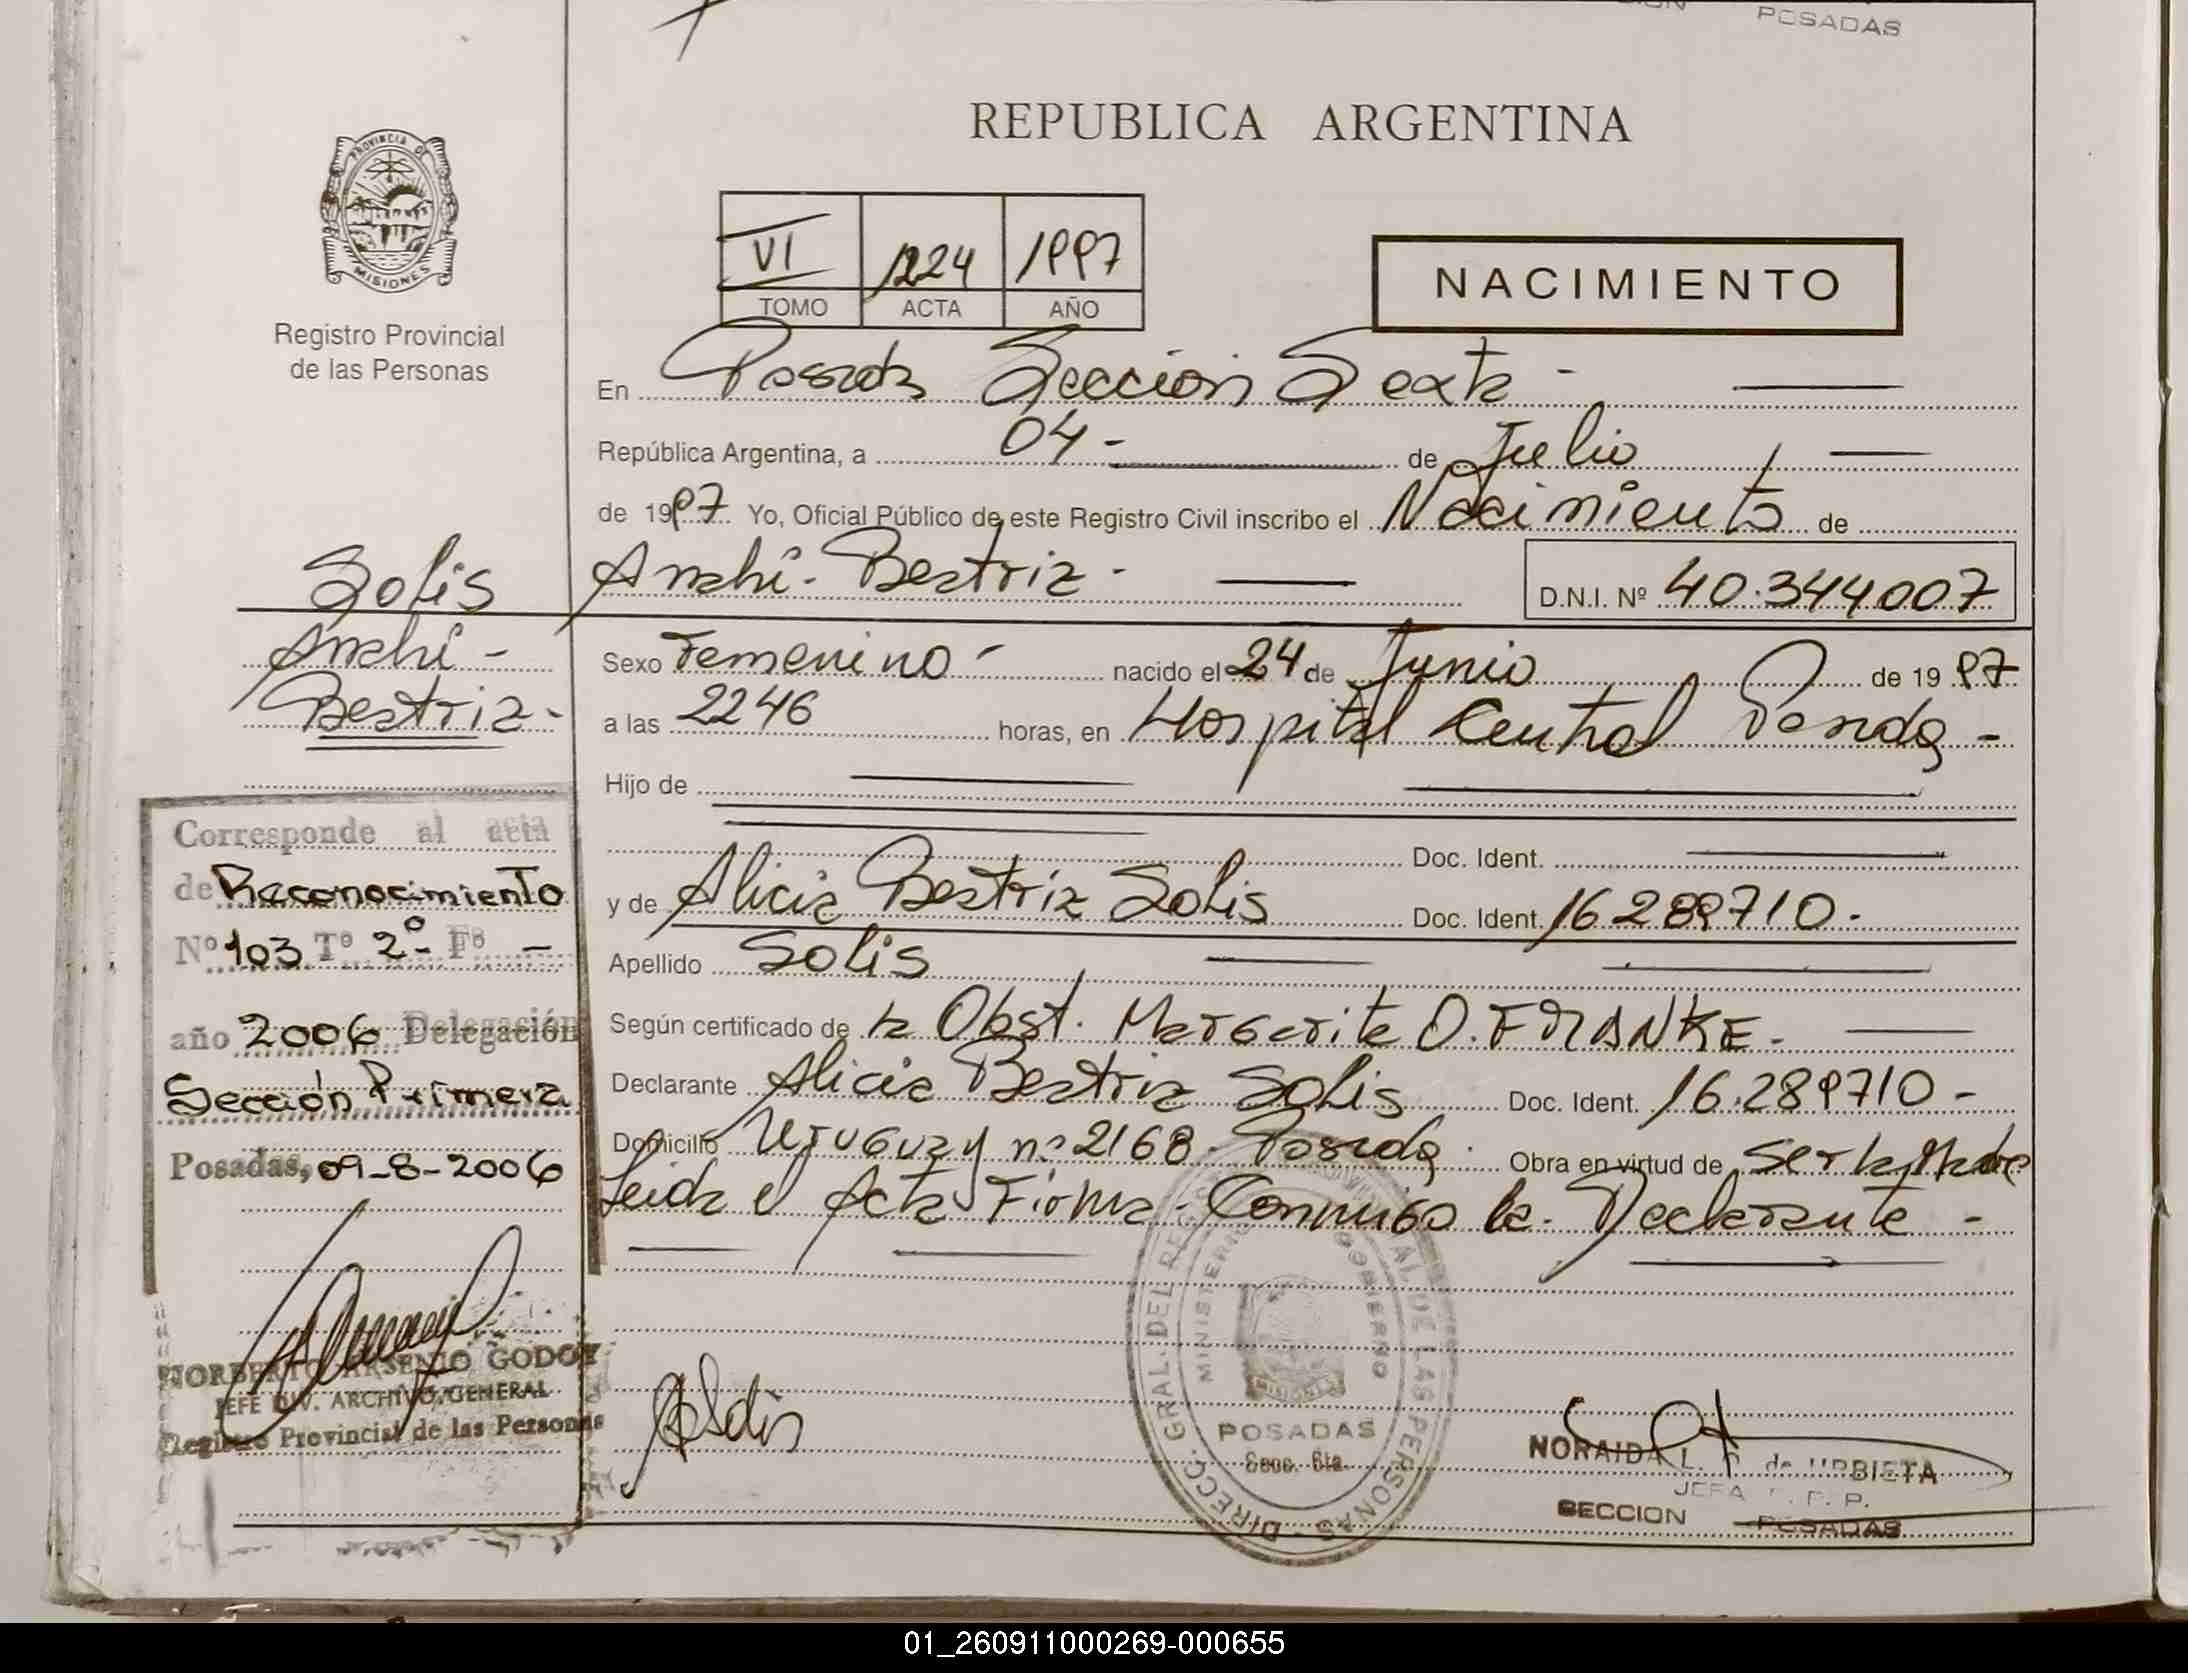 POSADAS
REPUBLICA ARGENTINA
PROVINCIA DE
MISIONES
Registro Provincial
de las Personas
VI 1224 1997
TOMO ACTA AÑO
NACIMIENTO
En Posadas Sección Sexta -
República Argentina, a 04 - de Julio
de 1997 Yo, Oficial Público de este Registro Civil inscribo el Nacimiento de
Anahí - Beatriz - D.N.I. Nº 40.344007
Solis
Anahí -
Beatriz -
Sexo Femenino - nacido el 24 de Junio de 1997
a las 2246 horas, en Hospital Central Posadas -
Hijo de
Doc. Ident.
y de Alicia Beatriz Solis Doc. Ident. 16289710 -
Apellido Solis
Según certificado de la Obst. Margarita O. FRANKE -
Declarante Alicia Beatriz Solis Doc. Ident. 16.289710 -
Domicilio Uruguay nº 2168 - Posadas Obra en virtud de ser la Madre
Leida el Acta Firma Conmigo la Declarante -
Corresponde al acta
de Reconocimiento
Nº 103 Tº 2º - Fº -
año 2006 Delegación
Sección Primera
Posadas, 09-8-2006
NORBERTO ARSENIO GODOY
JEFE DIV. ARCHIVO GENERAL
Registro Provincial de las Personas
ABSolis
DIRECC. GRAL. DEL REG. PROVINCIAL DE LAS PERSONAS
MINISTERIO GOBIERNO
MISIONES
POSADAS
Secc. 6ta.
NORAIDA L. de URBIETA
JEFA R. P. P.
SECCION POSADAS
01_260911000269-000655